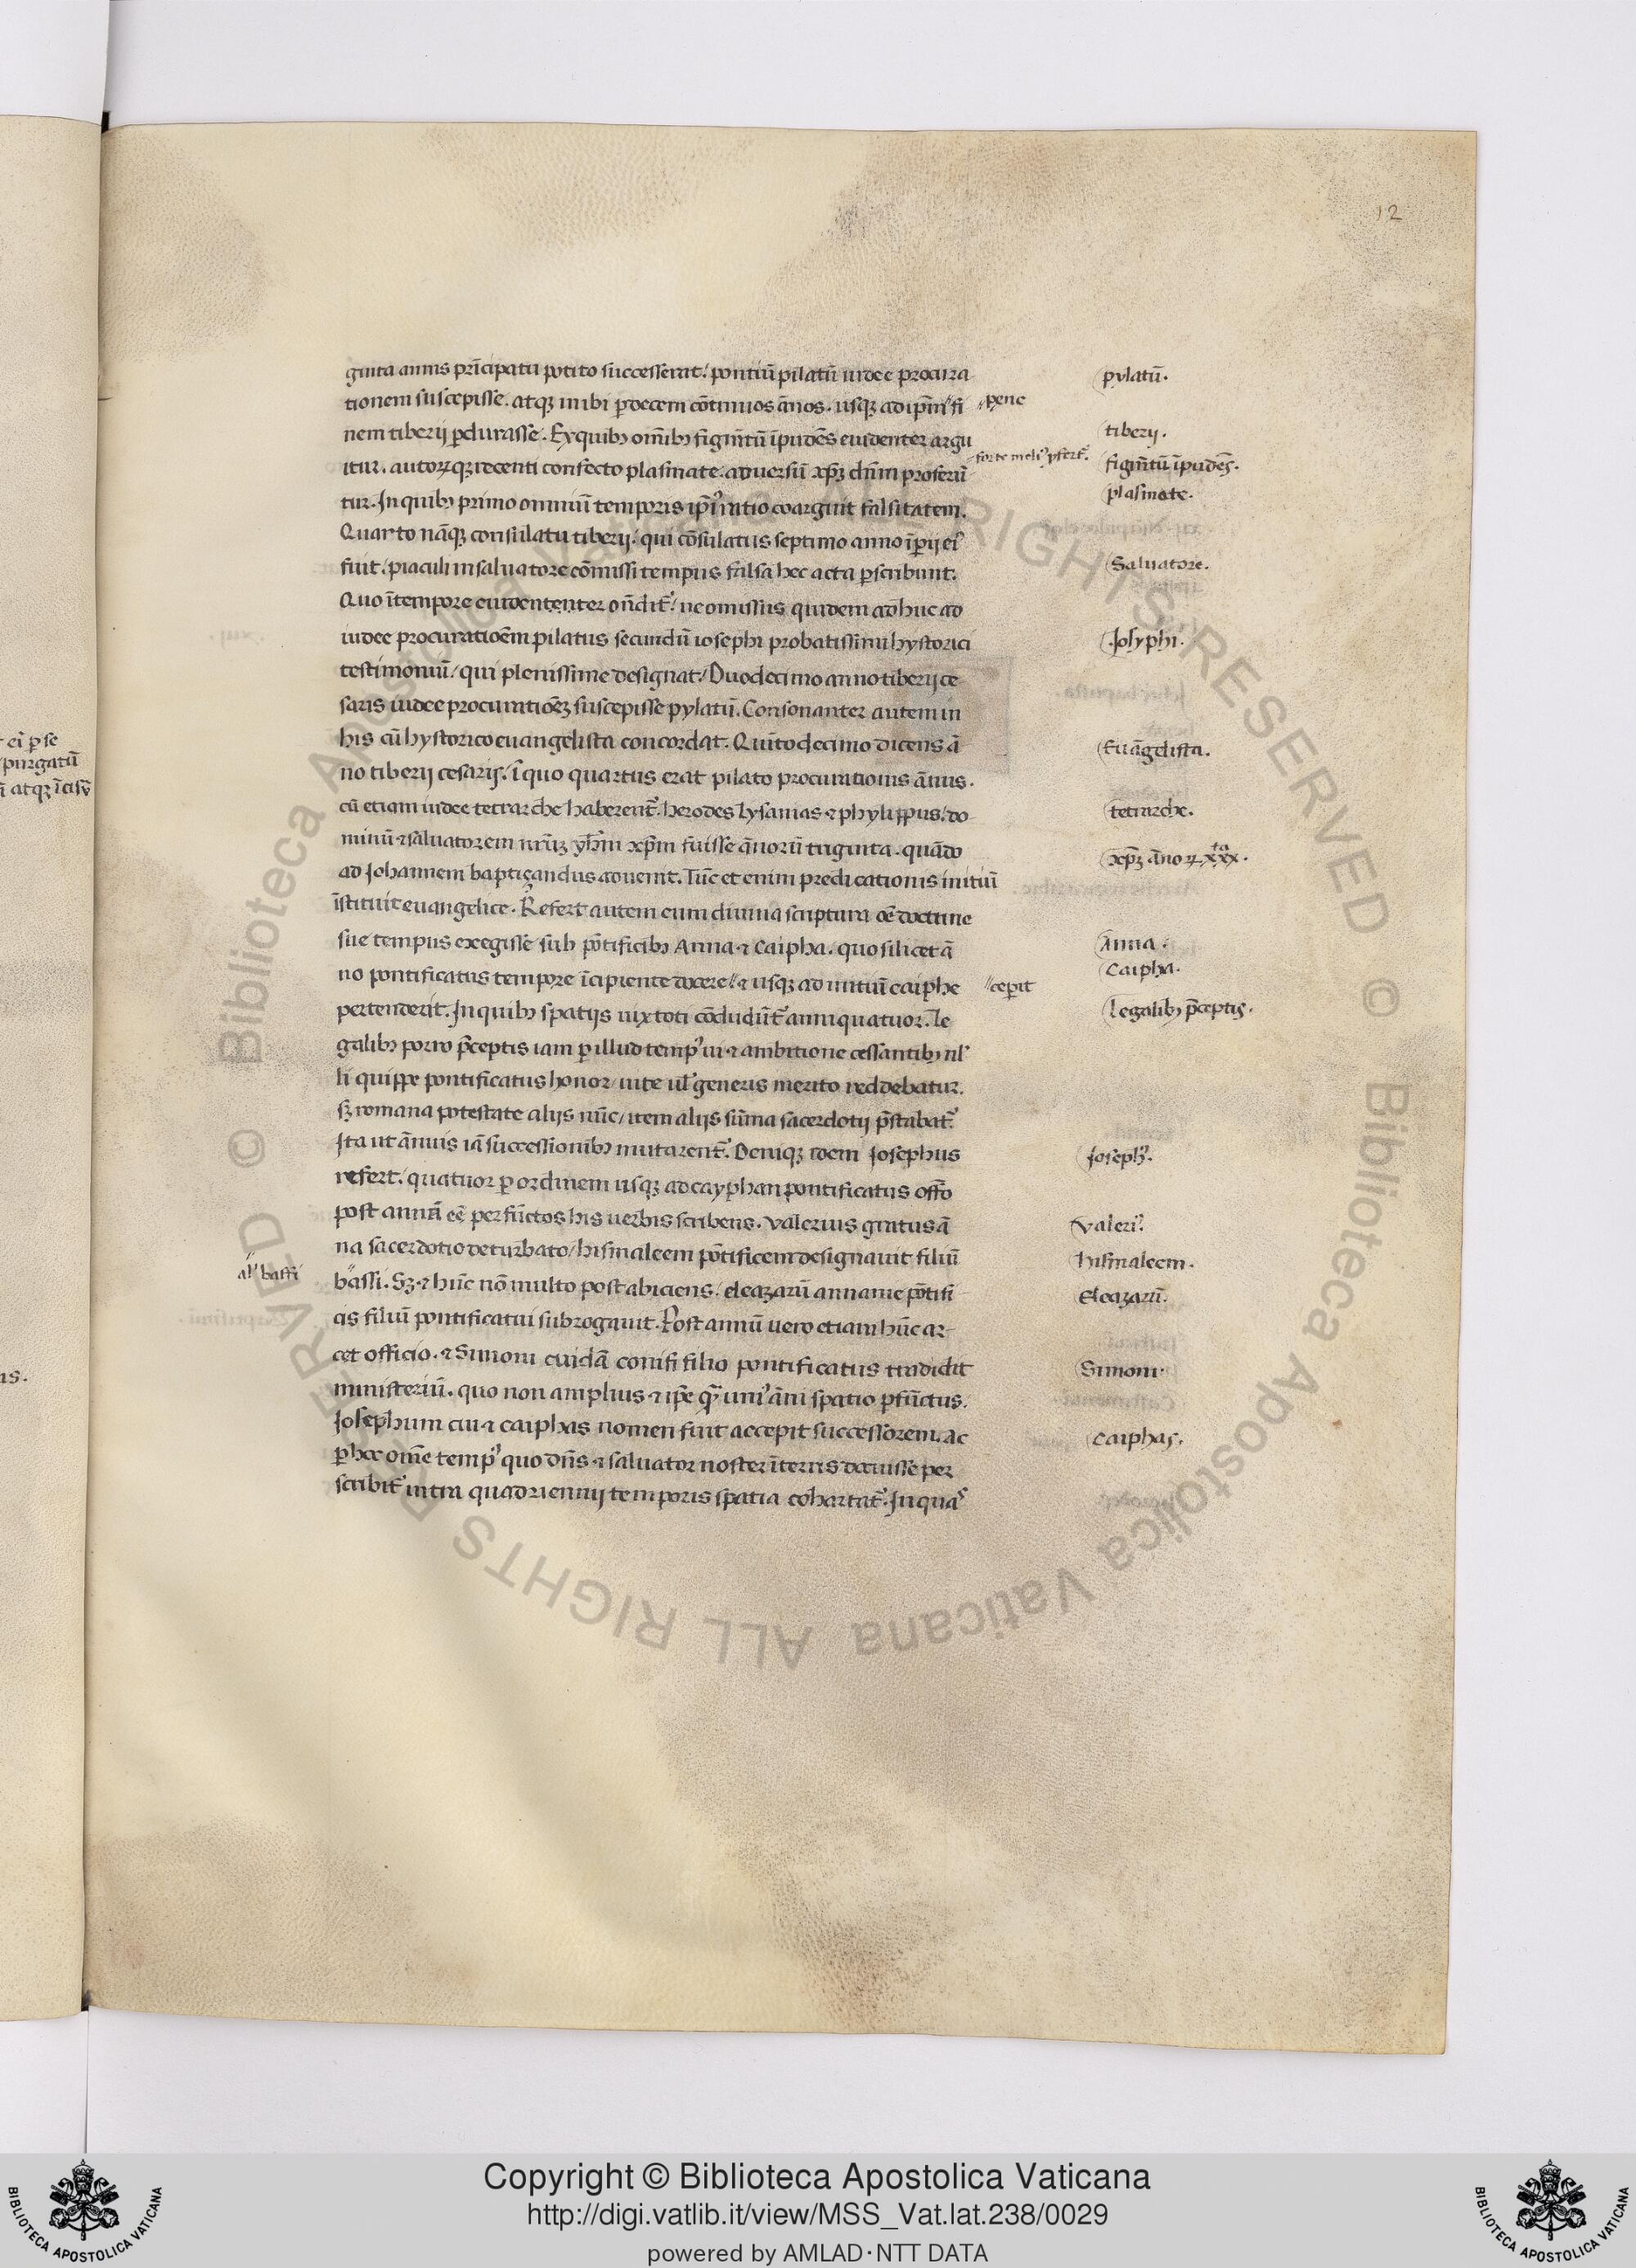 12
ginta annis prīcipatu potito successerat. pontiū pilatū iudee procura
tionem suscepisse. atqꝫ inibi ꝑ decem cōtinuos ānos. usqꝫ ad ip̄m fi
nem tiberij ꝑdurasse. Ex quibꝫ om̄ibꝫ figm̄tū īpudēs euidenter argu
itur. autorꝝqꝫ recenti confecto plasmate. aduersū xp̄ꝫ dn̄m proferū
tur. In quibꝫ primo omniū temporis ip̄iꝰ ratio coarguit falsitatem.
Quarto nāqꝫ consulatu tiberij. qui cōsulatus septimo anno īꝑij eiꝰ
fuit. piaculi in saluatore cōmissi tempus falsa hec acta ꝑscribunt.
Quo ī tempore euidententer on̄dit᷑. nec omissus quidem adhuc ad
iudee procuratioēm pilatus secundū iosephi probatissimi hystorici
testimoniū. qui plenissime designat. Duodecimo anno tiberij ce
saris iudee procuratiōeꝫ suscepisse pylatū. Consonanter autem in
his cū hystorico euangelista concordat. Quītodecimo dicens ā
no tiberij cesaris. ī quo quartus erat pilato procurationis ānus.
cū etiam iudee tetrarche haberent᷑. herodes lysanias ⁊ phylippus. do
minū ⁊ saluatorem nr̄uꝫ yh̄m xp̄m fuisse ānorū triginta. quādo
ad Johannem baptiçandus aduenit. Tūc et enim predicationis initiū
īstituit euangelice. Refert autem eum diuina scriptura oē doctrine
sue tempus exegisse sub pōtificibꝫ Anna ⁊ Caipha. quo silicet ā
no pontificatus tempore īcipiente docere ⁊ usqꝫ ad initiū caiphe
pertenderit. In quibꝫ spatijs uix toti cōcludūt᷑ anni quatuor. Le
galibꝫ porro p̄ceptis iam ꝑ illud tempꝰ ui ⁊ ambitione cessantibꝫ nl̓
li quippe pontificatus honor uite ul̓ generis merito reddebatur.
sꝫ romana potestate alijs nūc. item alijs sūma sacerdotij p̄stabat᷑
Ita ut ānuis iā successionibꝫ mutarent᷑. Deniqꝫ idem Josephus
refert. quatuor ꝑ ordinem usqꝫ ad cayphan pontificatus offō
post annā eē perfūctos his uerbis scribens. Valerius gratus ā
na sacerdotio deturbato. hismaleem pōtificem designauit filiū
bassi. Sꝫ ⁊ hūc nō multo post abiciens. eleazarū annanie pōtifi
cis filiū pontificatui subrogauit. Post annū uero etiam hūc ar
cet officio. ⁊ Simoni cuidā comifi filio pontificatus tradidit
ministeriū. quo non amplius ⁊ ip̄e q̄ uniꝰ āni spatio ꝑfūctus.
Josephum cui ⁊ caiphas nomen fuit accepit successorem. ac
ꝑ hec om̄e tempꝰ quo dn̄s ⁊ saluator noster ī terris docuisse per
scribit᷑ intra quadriennij temporis spatia cohartat᷑. In qua
pylatū.
pene
tiberij.
forte meliꝰ ꝓfert᷑.
figm̄tū īpudēs.
plasmate.
Saluatore.
Josyphi.
Euāgelista.
tetrarche.
xp̄ꝫ ānoꝝ xxx.ta
Anna.
Caipha.
cepit
Legalibꝫ p̄ceptis.
Josephꝰ.
Valeriꝰ.
al̓ bassi
hismaleem.
Eleazarū.
Simoni.
Caiphas.
ei ꝑ se
purgatū
Copyright © Biblioteca Apostolica Vaticana
http://digi.vatlib.it/view/MSS_Vat.lat.238/0029
powered by AMLAD·NTT DATA
BIBLIOTECA APOSTOLICA VATICANA
BIBLIOTECA APOSTOLICA VATICANA
© Biblioteca Apostolica Vaticana ALL RIGHTS RESERVED
© Biblioteca Apostolica Vaticana ALL RIGHTS RESERVED